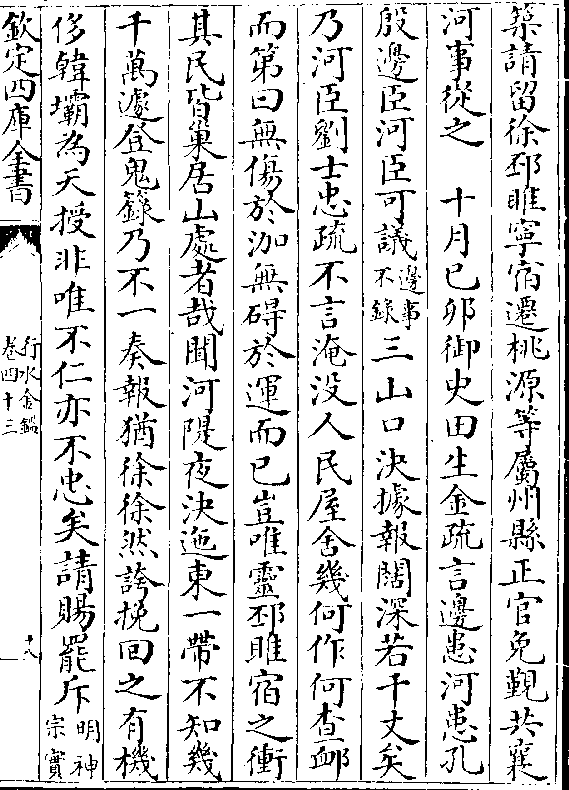 築請留徐邳睢寧宿遷桃源等屬州縣正官免覲共襄
河事從之　十月己卯御史田生金疏言邊患河患孔
殷邊臣河臣可議邊事不錄三山口決據報闊深若干丈矣
乃河臣劉士忠疏不言淹沒人民屋舍幾何作何查䘏
而第曰無傷於泇無碍於運而已豈唯靈邳睢宿之衝
其民皆巢居山處者哉聞河隄夜決迤東一帶不知幾
千萬遽登鬼籙乃不一奏報猶徐徐然誇挽回之有機
侈韓壩為天授非唯不仁亦不忠矣請賜罷斥明神宗實
欽定四庫全書
行水金鑑
卷四十三
十八